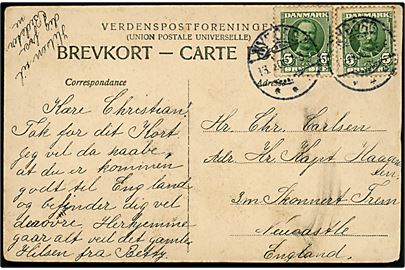 VERDENSPOSTFORENINGEN
(UNION POSTALE UNIVERSELLE)
BREVKORT - CARTE
DANMARK
5 5
ØRE
DANMARK
5 5
ØRE
Correspondance
Adressen
Hilsen til
dig fra
Kære Christian!
Tak for dit Kort,
jeg vil da haabe,
at du er kommen
godt til England
og befinder dig vel
derovre. Herhjemme
gaar alt ved det gamle
Hilsen fra Betty.
Hr. Chr. Carlsen
Adr. Hr. Kapt. Haagen
3m Skonnert Trem
Newcastle
England.